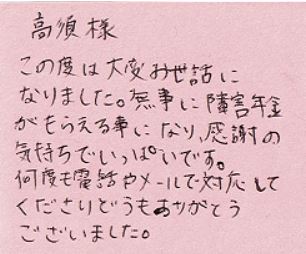 高須様
この度は大変お世話に
なりました。無事に障害年金
がもらえる事になり、感謝の
気持ちでいっぱいです。
何度も電話やメールで対応して
くださりどうもありがとう
ございました。